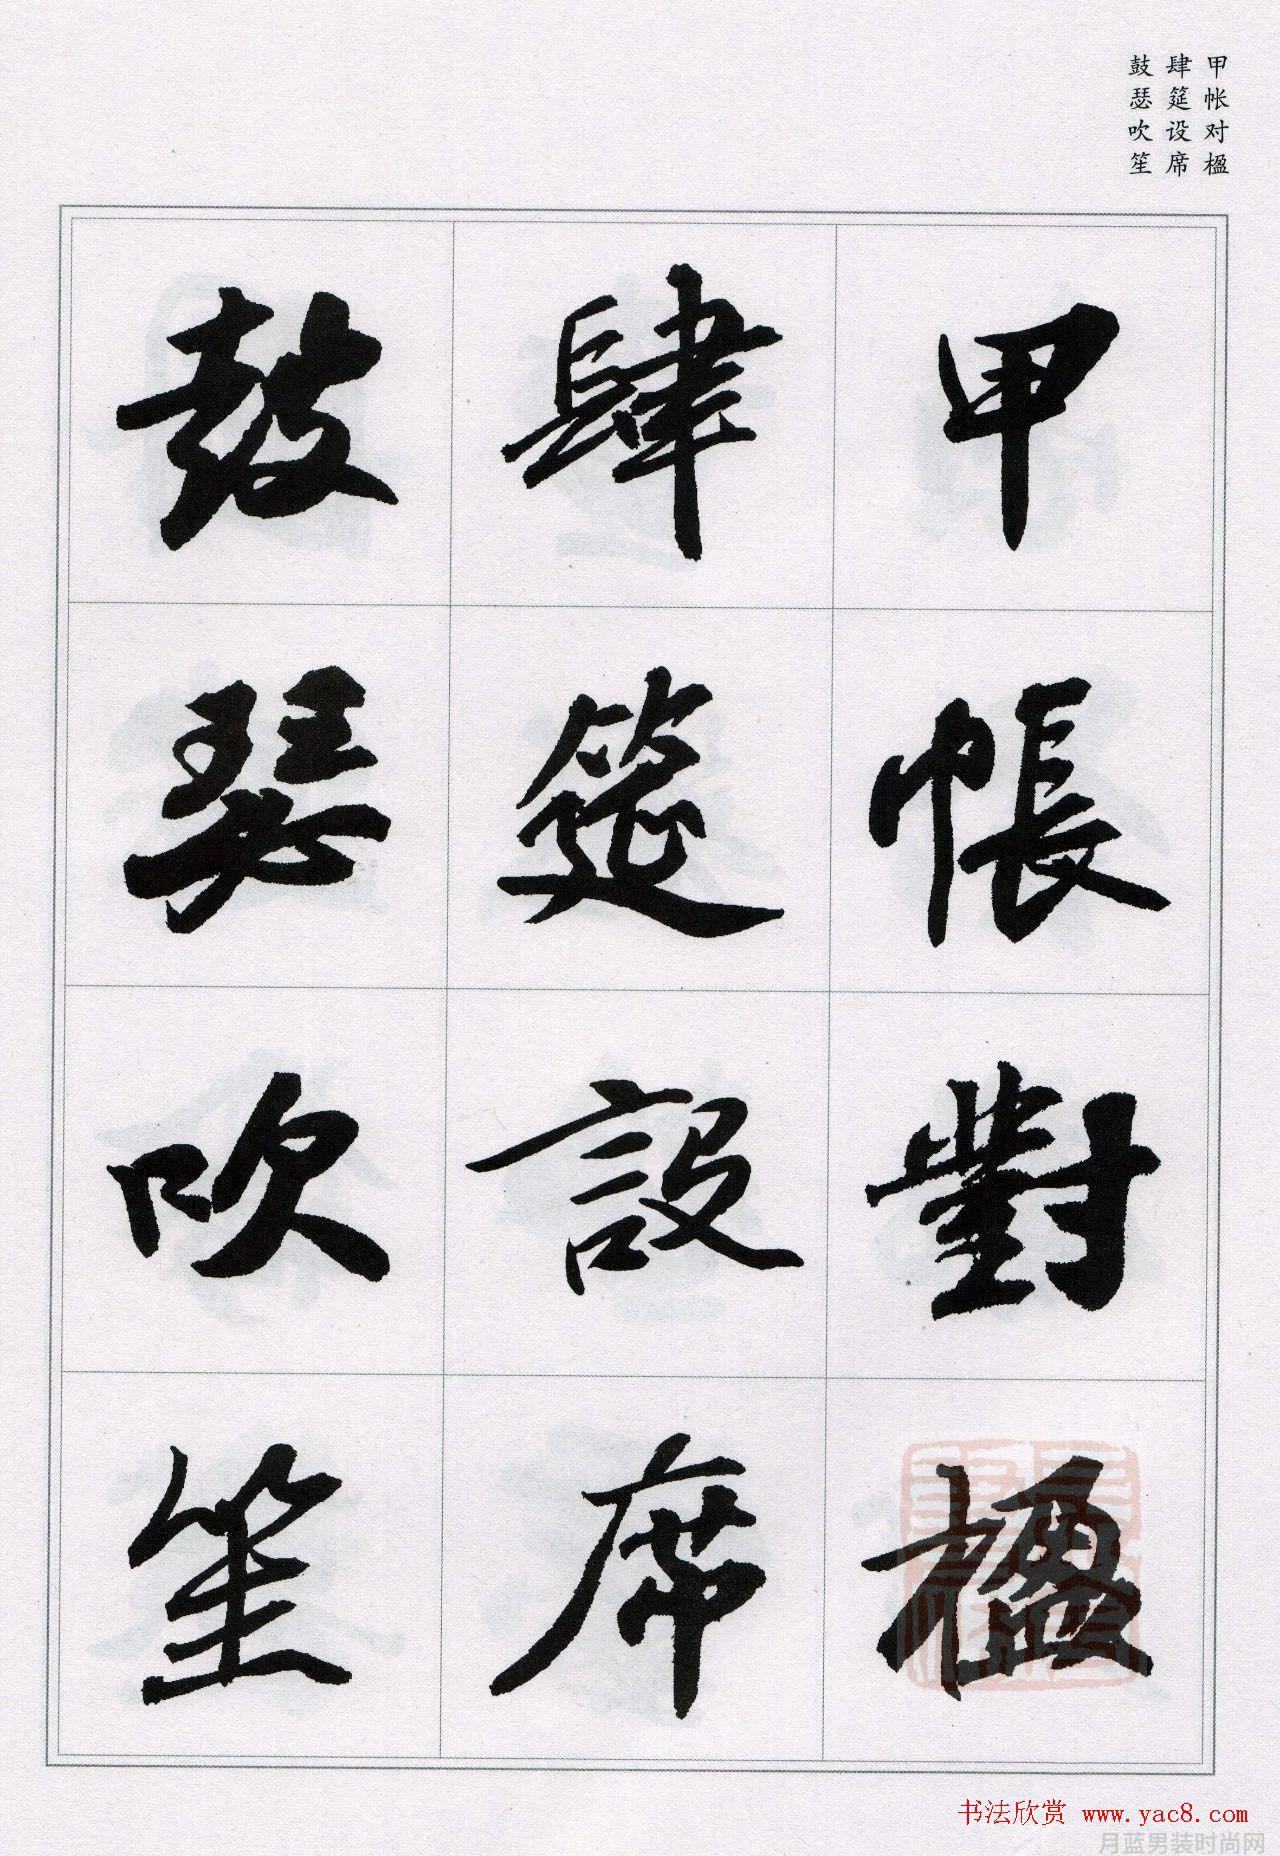 甲帐对楹
肆筵设席
鼓瑟吹笙
甲帳對楹
肆筵設席
鼓瑟吹笙
书法欣赏 www.yac8.com
月蓝男装时尚网